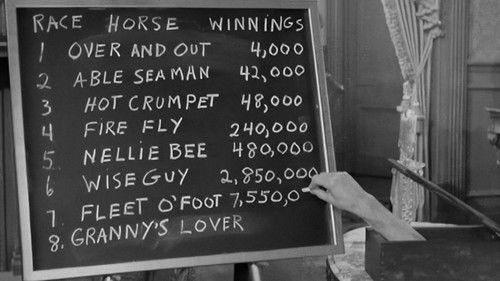 RACE HORSE WINNINGS
1 OVER AND OUT 4,000
2 ABLE SEAMAN 42,000
3 HOT CRUMPET 48,000
4 FIRE FLY 240,000
5. NELLIE BEE 480,000
6 WISE GUY 2,850,000
7. FLEET O'FOOT 7,550,0
8. GRANNY'S LOVER